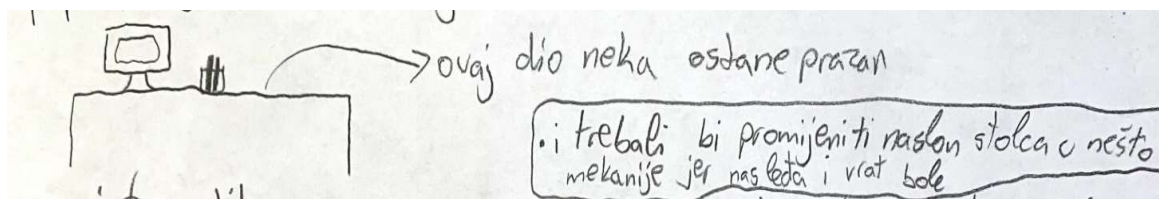 ovaj dio neka ostane prazan
• i trebali bi promijeniti naslon stolca u nešto
mekanije jer nas leđa i vrat bole